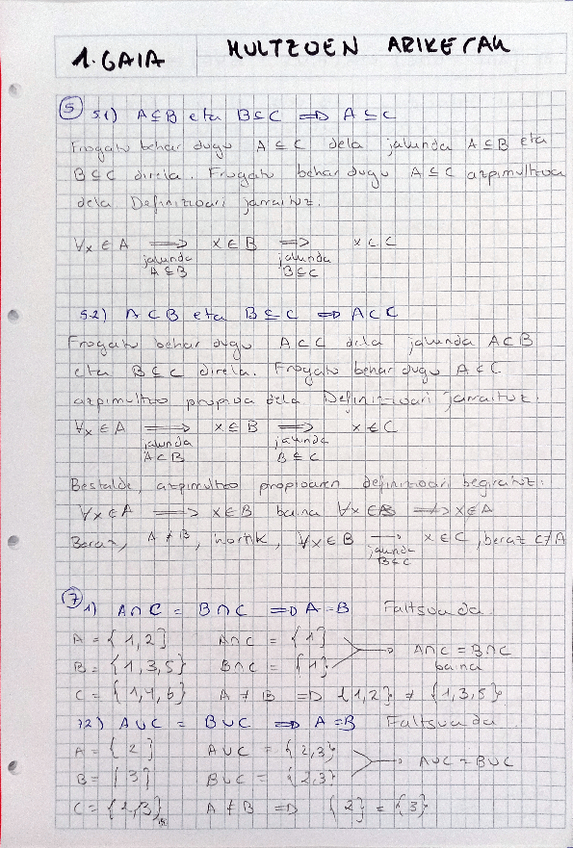 1. GAIA MULTZOEN ARIKETAK
5 5.1) A ⊆ B eta B ⊆ C ⟹ A ⊆ C
Frogatu behar dugu A ⊆ C dela jakinda A ⊆ B eta
B ⊆ C direla. Frogatu behar dugu A ⊆ C azpimultzoa
dela Definizioari jarraituz.
∀x ∈ A ⟹ x ∈ B ⟹ x ∈ C
jakinda jakinda
A ⊆ B B ⊆ C
5.2) A ⊂ B eta B ⊆ C ⟹ A ⊂ C
Frogatu behar dugu A ⊂ C dela jakinda A ⊂ B
eta B ⊆ C direla. Frogatu behar dugu A ⊂ C
azpimultzo propioa dela Definizioari jarraituz.
∀x ∈ A ⟹ x ∈ B ⟹ x ∈ C
jakinda jakinda
A ⊂ B B ⊆ C
Bestalde, azpimultzo propioaren definizioari begiratuz:
∀x ∈ A ⟹ x ∈ B baina ∀x ∈ B ⇏ x ∈ A
Beraz, A ≠ B, hortik, ∀x ∈ B ⟹ x ∈ C, beraz C ≠ A
jakinda
B ⊆ C
7 1) A ∩ C = B ∩ C ⟹ A = B Faltsua da.
A = {1,2} A ∩ C = {1}
A ∩ C = B ∩ C
B = {1,3,5} B ∩ C = {1}
baina
C = {1,4,6} A ≠ B ⟹ {1,2} ≠ {1,3,5}
2) A ∪ C = B ∪ C ⟹ A = B Faltsua da
A = {2} A ∪ C = {2,3}
A ∪ C = B ∪ C
B = {3} B ∪ C = {2,3}
C = {2,3} A ≠ B ⟹ {2} ≠ {3}